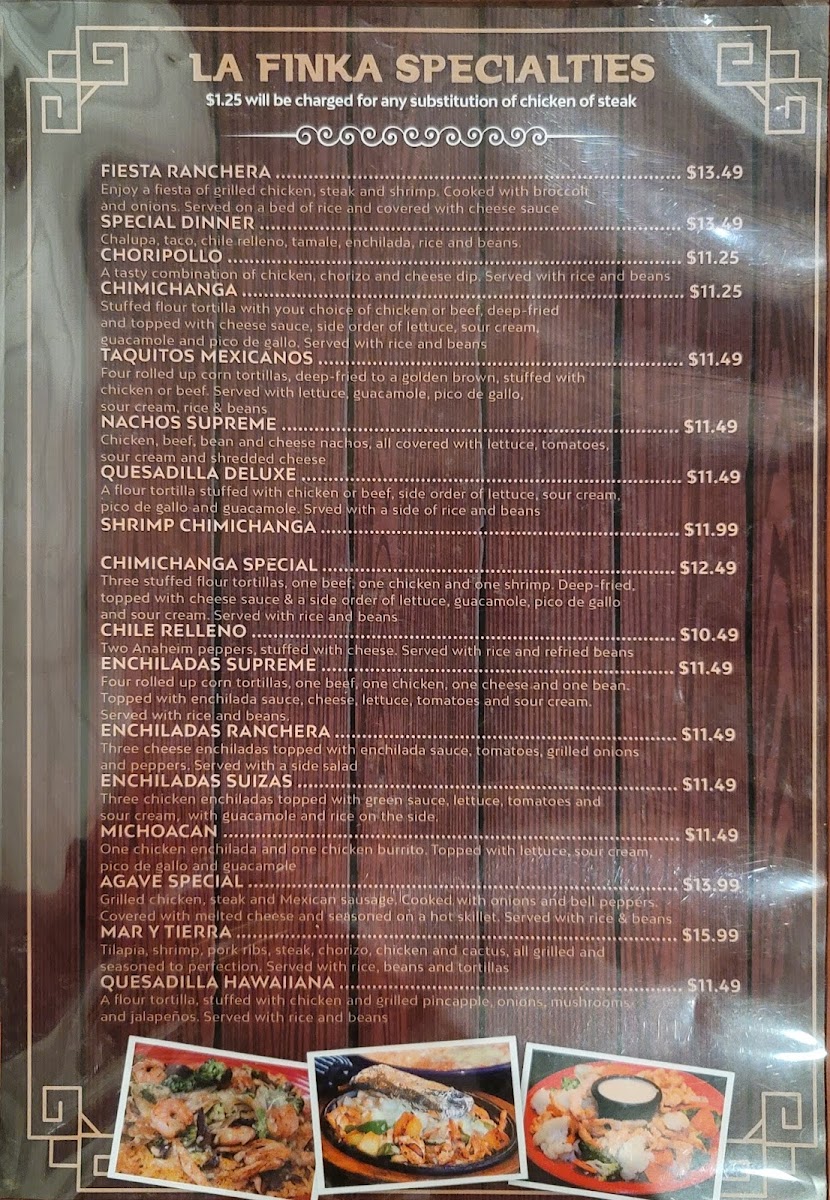 LA FINKA SPECIALTIES
$1.25 will be charged for any substitution of chicken of steak
FIESTA RANCHERA $13.49
Enjoy a fiesta of grilled chicken, steak and shrimp. Cooked with broccoli
and onions. Served on a bed of rice and covered with cheese sauce
SPECIAL DINNER $13.49
Chalupa, taco, chile relleno, tamale, enchilada, rice and beans.
CHORIPOLLO $11.25
A tasty combination of chicken, chorizo and cheese dip. Served with rice and beans
CHIMICHANGA $11.25
Stuffed flour tortilla with your choice of chicken or beef, deep-fried
and topped with cheese sauce, side order of lettuce, sour cream,
guacamole and pico de gallo. Served with rice and beans
TAQUITOS MEXICANOS $11.49
Four rolled up corn tortillas, deep-fried to a golden brown, stuffed with
chicken or beef. Served with lettuce, guacamole, pico de gallo,
sour cream, rice & beans
NACHOS SUPREME $11.49
Chicken, beef, bean and cheese nachos, all covered with lettuce, tomatoes,
sour cream and shredded cheese
QUESADILLA DELUXE $11.49
A flour tortilla stuffed with chicken or beef, side order of lettuce, sour cream,
pico de gallo and guacamole. Srved with a side of rice and beans
SHRIMP CHIMICHANGA $11.99
CHIMICHANGA SPECIAL $12.49
Three stuffed flour tortillas, one beef, one chicken and one shrimp. Deep-fried,
topped with cheese sauce & a side order of lettuce, guacamole, pico de gallo
and sour cream. Served with rice and beans
CHILE RELLENO $10.49
Two Anaheim peppers, stuffed with cheese. Served with rice and refried beans
ENCHILADAS SUPREME $11.49
Four rolled up corn tortillas, one beef, one chicken, one cheese and one bean.
Topped with enchilada sauce, cheese, lettuce, tomatoes and sour cream.
Served with rice and beans.
ENCHILADAS RANCHERA $11.49
Three cheese enchiladas topped with enchilada sauce, tomatoes, grilled onions
and peppers. Served with a side salad
ENCHILADAS SUIZAS $11.49
Three chicken enchiladas topped with green sauce, lettuce, tomatoes and
sour cream, with guacamole and rice on the side.
MICHOACAN $11.49
One chicken enchilada and one chicken burrito. Topped with lettuce, sour cream,
pico de gallo and guacamole
AGAVE SPECIAL $13.99
Grilled chicken, steak and Mexican sausage. Cooked with onions and bell peppers.
Covered with melted cheese and seasoned on a hot skillet. Served with rice & beans
MAR Y TIERRA $15.99
Tilapia, shrimp, pork ribs, steak, chorizo, chicken and cactus, all grilled and
seasoned to perfection. Served with rice, beans and tortillas
QUESADILLA HAWAIIANA $11.49
A flour tortilla, stuffed with chicken and grilled pincapple, onions, mushrooms
and jalapeños. Served with rice and beans